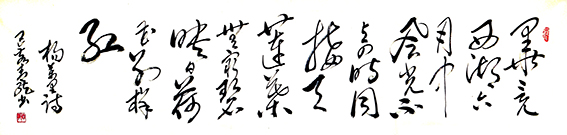 畢竟
西湖六
月中
風光不
與四時同
接天
蓮葉
無窮碧
映日荷
花別樣
紅
楊萬里詩